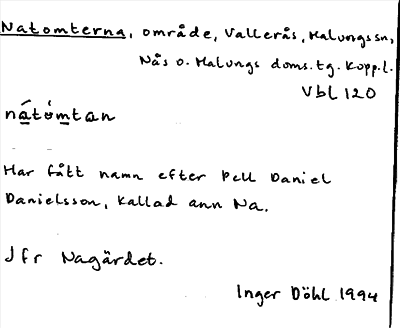 Natomterna, område, Vallerås, Malungs sn,
Nås o. Malungs doms.tg. Kopp.l.
Vbl 120
nátómtan
Har fått namn efter Pell Daniel
Danielsson, kallad ann Na.
Jfr Nagärdet.
Inger Döhl 1994